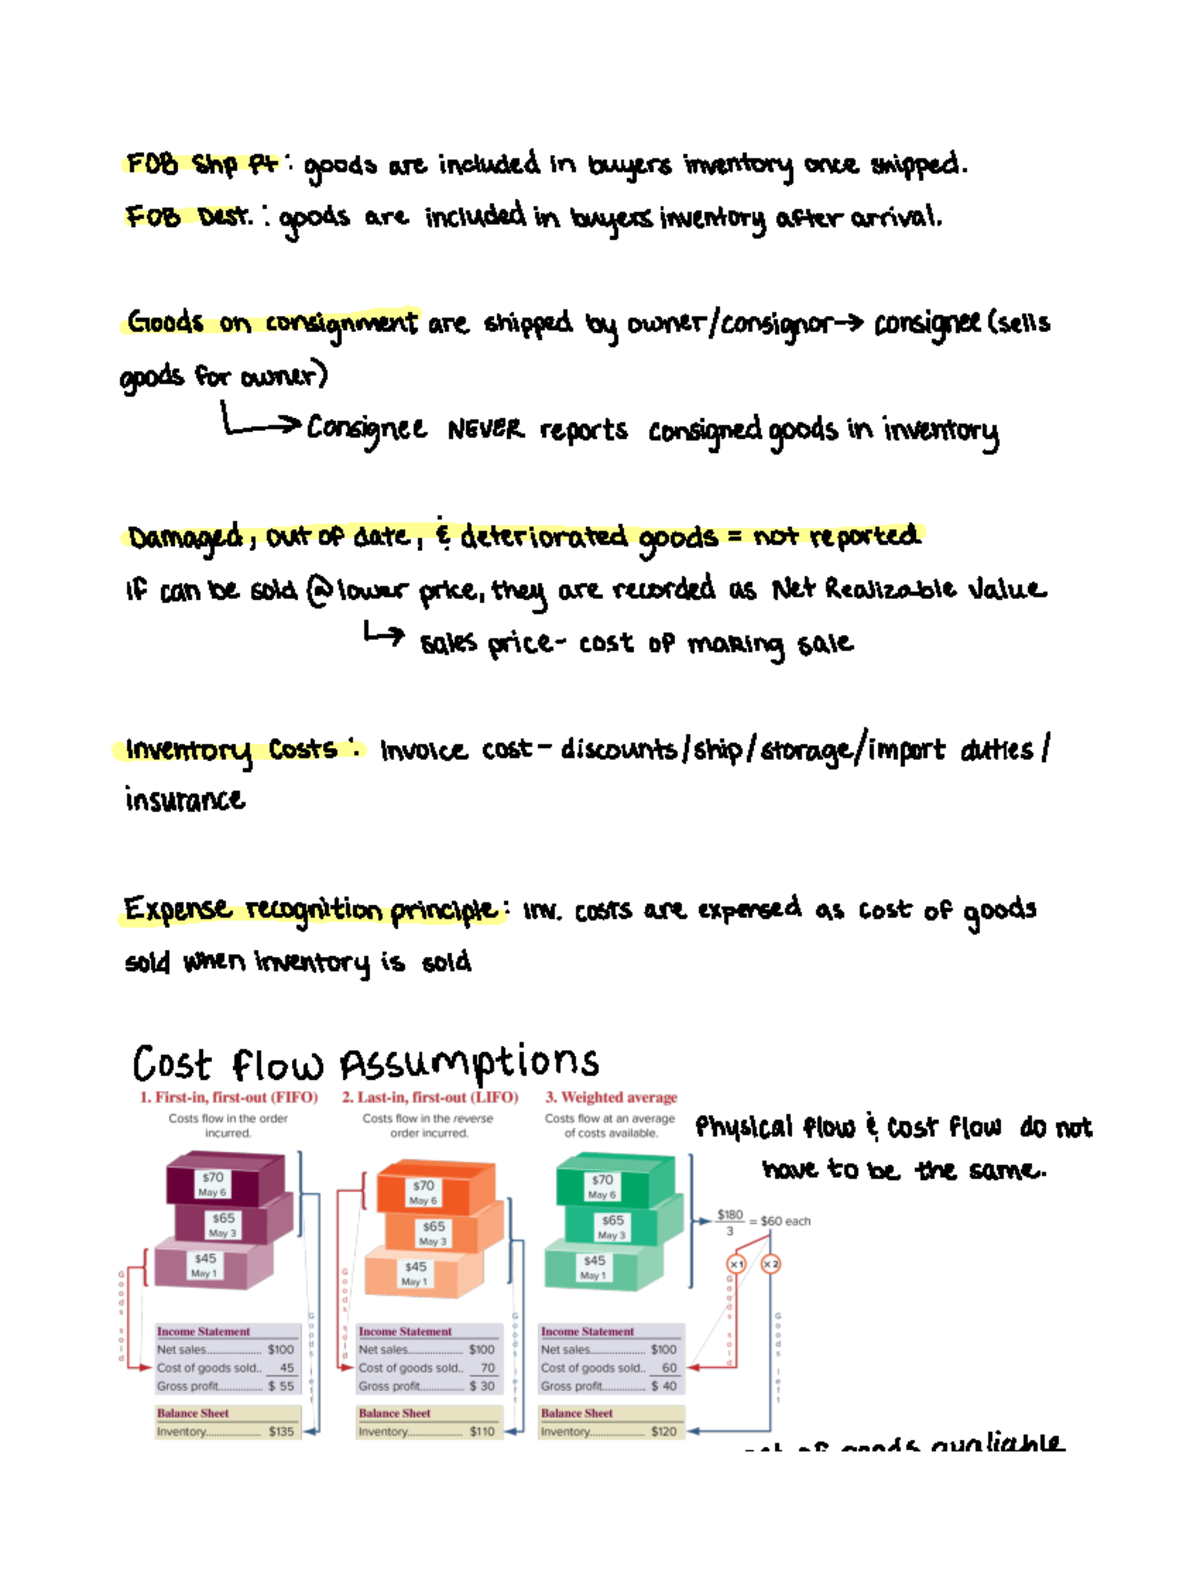 FOB Shp Pt: goods are included in buyers inventory once shipped.
FOB Dest.: goods are included in buyers inventory after arrival.
Goods on consignment are shipped by owner/consignor→ consignee (sells
goods for owner)
→ Consignee NEVER reports consigned goods in inventory
Damaged, out of date, & deteriorated goods = not reported
if can be sold @ lower price, they are recorded as Net Realizable Value
→ sales price- cost of making sale
Inventory Costs: Invoice cost- discounts/ship/storage/import duties/
insurance
Expense recognition principle: inv. costs are expensed as cost of goods
sold when inventory is sold
Cost Flow Assumptions
1. First-in, first-out (FIFO)
Costs flow in the order
incurred.
$70
May 6
$65
May 3
$45
May 1
Goods sold
Goods left
Income Statement
Net sales................ $100
Cost of goods sold.. 45
Gross profit.............. $ 55
Balance Sheet
Inventory.................. $135
2. Last-in, first-out (LIFO)
Costs flow in the reverse
order incurred.
$70
May 6
$65
May 3
$45
May 1
Goods sold
Goods left
Income Statement
Net sales................ $100
Cost of goods sold.. 70
Gross profit.............. $ 30
Balance Sheet
Inventory.................. $110
3. Weighted average
Costs flow at an average
of costs available.
$70
May 6
$65
May 3
$45
May 1
$180
3
= $60 each
×1
×2
Goods sold
Goods left
Income Statement
Net sales................ $100
Cost of goods sold.. 60
Gross profit.............. $ 40
Balance Sheet
Inventory.................. $120
Physical flow & cost flow do not
have to be the same.
of goods avaliable